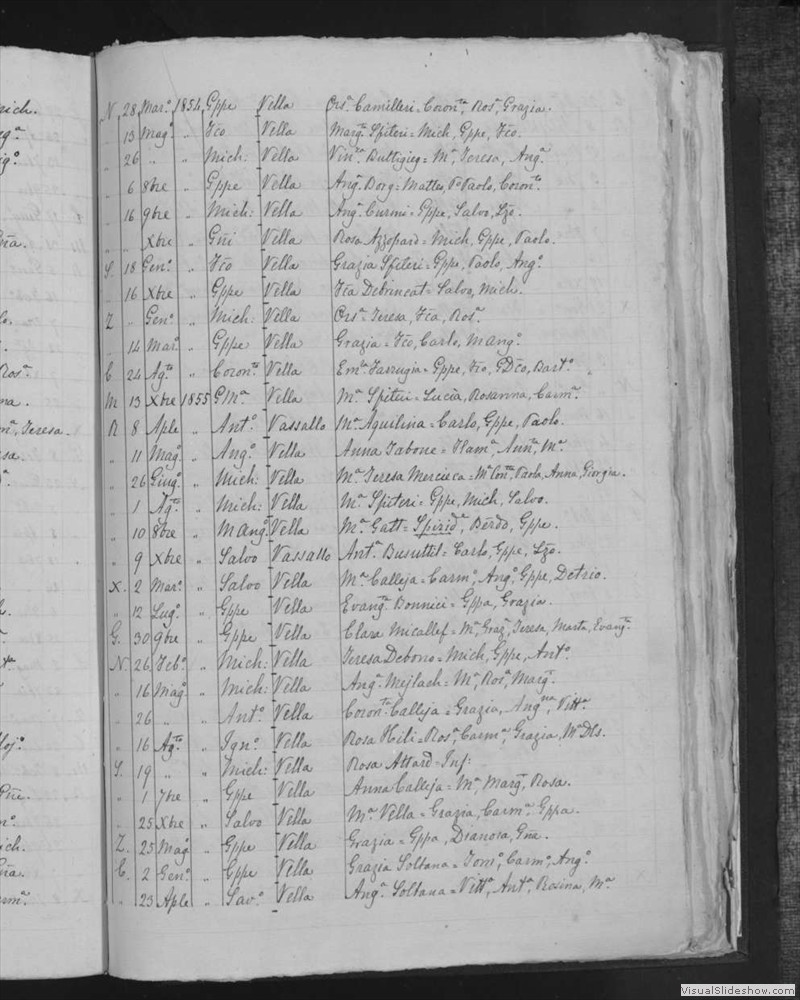 mich.
N. 28 Mar.o 1854 Gppe Vella Ors.a Camilleri = Coron.ta Ros.a Grazia.
" 13 Mag.o " Fco Vella Marg.a Spiteri = Mich, Gppe, Fco.
" 26 " " Mich: Vella Vin.za Buttigieg = M.a Teresa, Ang.a
" 6 8bre " Gppe Vella Ang.a Borg = Matteo, Paolo, Coron.to
" 16 9bre " Mich: Vella Ang.a Curmi = Gppe, Salvo, Lzo.
" " Xbre " Gni Vella Rosa Azzopard = Mich, Gppe, Paolo.
S. 18 Gen.o " Fco Vella Grazia Spiteri = Gppe, Paolo, Ang.o
" 16 Xbre " Gppe Vella Fca Debrincat = Salvo, Mich.
Z " Gen.o " Mich: Vella Ors.a = Teresa, Fca, Ros.a
" 14 Mar.o " Gppe Vella Grazia = Fco, Carlo, M Ang.o
C 24 Ag.to " Coron.to Vella Em.a Farrugia = Gppe, Fco, GDco, Bart.o
M 13 Xbre 1855 GMa Vella M.a Spiteri = Lucia, Rosanna, Carm.a
R 8 Aple " Ant.o Vassallo M.a Aquilina = Carlo, Gppe, Paolo.
" 11 Mag.o " Ang.o Vella Anna Tabone = Anna, M.a
" 26 Giug.o " Mich: Vella M.a Teresa Mercieca = Paolo, Anna, Giorgia.
" 1 Ag.to " Mich: Vella M.a Spiteri = Gppe, Mich, Salvo.
" 10 8bre " M Ang.o Vella M.a Gatt = Spirid.e Berdo, Gppe.
" 9 Xbre " Salvo Vassallo Ant.a Busuttil = Carlo, Gppe, Lzo.
X. 2 Mar.o " Salvo Vella M.a Calleja = Carm.o, Ang.o, Gppe, Detrio.
" 12 Lug.o " Gppe Vella Evang.a Bonnici = Gppa, Grazia.
G. 30 9bre " Gppe Vella Clara Micallef = M.a Graz.a Teresa, Marta, Evang.a
N. 26 Feb.o " Mich: Vella Teresa Debono = Mich, Gppe, Ant.o
" 16 Mag.o " Mich: Vella Ang.a Mejlach = M.a, Ros.a, Marg.a
" 26 " " Ant.o Vella Coron.ta Calleja = Grazia, Ang.na, Vitt.a
" 16 Ag.to " Ign.o Vella Rosa Hili = Ros.a, Carm.a, Grazia, M.a Dls.
S. 19 " " Mich: Vella Rosa Attard = Inf:
" 1 7bre " Gppe Vella Anna Calleja = M.a, Marg.a, Rosa.
" 25 Xbre " Salvo Vella M.a Vella = Grazia, Carm.a Gppa.
Z. 25 Mag.o " Gppe Vella Grazia = Gppa, Dianora, Gna.
C. 2 Gen.o " Gppe Vella Grazia Soltana = Carm.o, Ang.o
" 23 Aple " Sav.o Vella Ang.a Soltana = Vitt.a, Ant.a, Rosina, M.a
VisualSlideshow.com